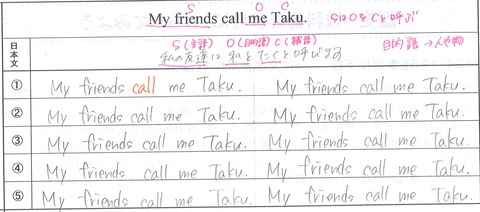 S O C
My friends call me Taku. SはOをCと呼ぶ
S(主語) O(目的語) C(補語) 目的語→人や物
日本文 私の友達は 私を たくと呼びます
① My friends call me Taku. My friends call me Taku.
② My friends call me Taku. My friends call me Taku.
③ My friends call me Taku. My friends call me Taku.
④ My friends call me Taku. My friends call me Taku.
⑤ My friends call me Taku. My friends call me Taku.